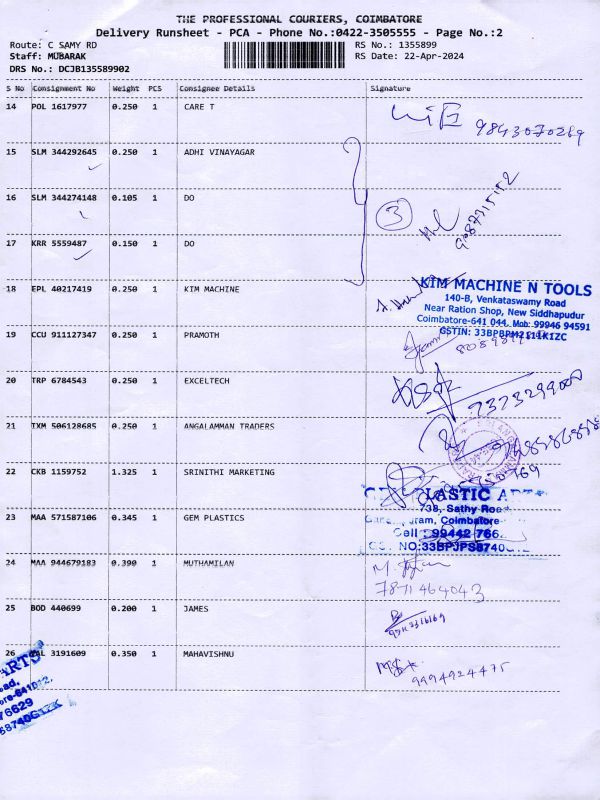 THE PROFESSIONAL COURIERS, COIMBATORE
Delivery Runsheet - PCA - Phone No.:0422-3505555 - Page No.:2
Route: C SAMY RD RS No.: 1355899
Staff: MUBARAK RS Date: 22-Apr-2024
DRS No.: DCJB135589902
S No Consignment No Weight PCS Consignee Details Signature
14 POL 1617977 0.250 1 CARE T
9843070269
15 SLM 344292645 0.250 1 ADHI VINAYAGAR
16 SLM 344274148 0.105 1 DO
3
17 KRR 5559487 0.150 1 DO
18 EPL 40217419 0.250 1 KIM MACHINE
KIM MACHINE N TOOLS
140-B, Venkataswamy Road
Near Ration Shop, New Siddhapudur
Coimbatore-641 044. Mob: 99946 94591
GSTIN: 33BPBPM2111K1ZC
19 CCU 911127347 0.250 1 PRAMOTH
20 TRP 6784543 0.250 1 EXCELTECH
7373299000
21 IXM 506128685 0.250 1 ANGALAMMAN TRADERS
22 CKB 1159752 1.325 1 SRINITHI MARKETING
PLASTIC
738, Sathy Road
Coimbatore
Cell : 99442 766
23 MAA 571587106 0.345 1 GEM PLASTICS
NO:33BPJPS8740G
24 MAA 944679183 0.390 1 MUTHAMILAN
7871464043
25 BOD 440699 0.200 1 JAMES
26 3191609 0.350 1 MAHAVISHNU
9994924475
ARTS
76629
58740G1ZK